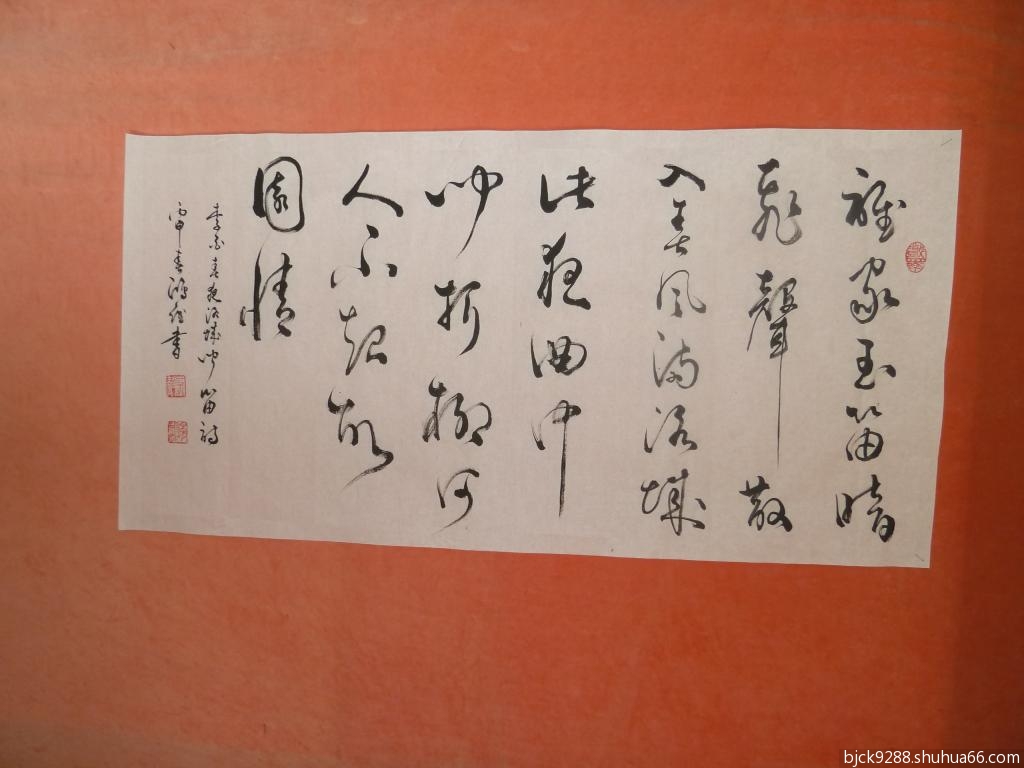 誰家玉笛暗
飛聲散
入春風滿洛城
此夜曲中
聞折柳何
人不起故
園情
李白春夜洛城聞笛詩
丙申春鴻書
bjck9288.shuhua66.com